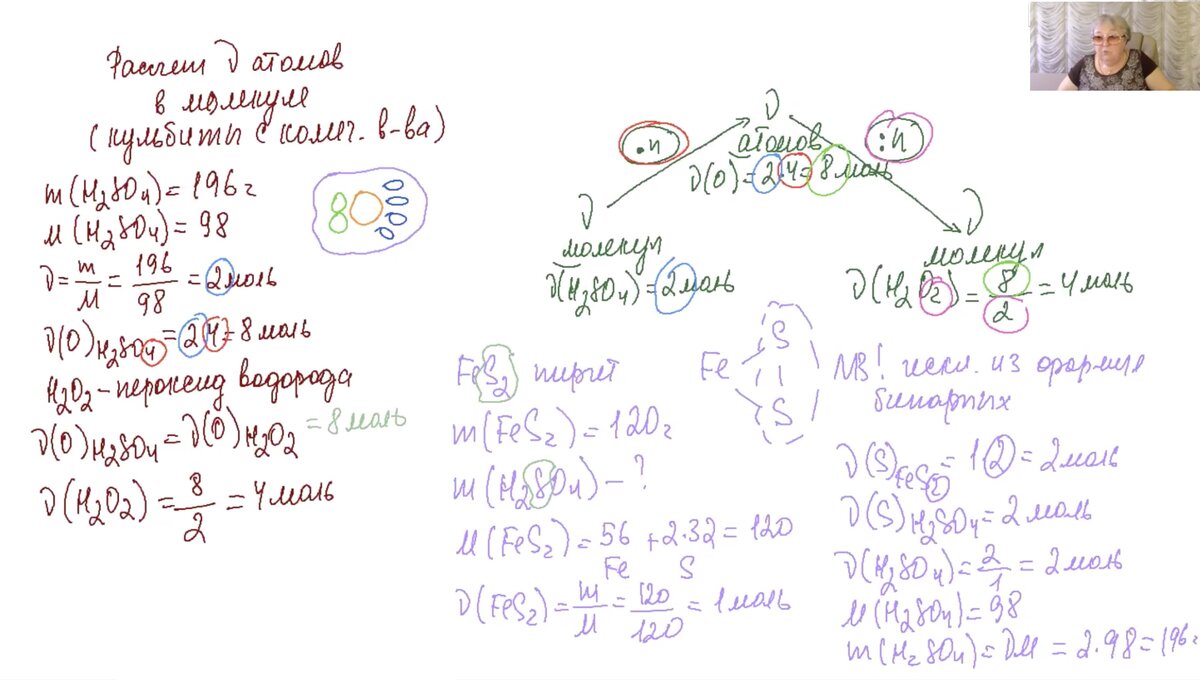 Расчет ν атомов
в молекуле
(кульбиты с колич. в-ва)
m(H₂SO₄) = 196 г
M(H₂SO₄) = 98
ν = m/M = 196/98 = 2 моль
ν(O) H₂SO₄ = 2·4 = 8 моль
H₂O₂ – пероксид водорода
ν(O) H₂SO₄ = ν(O) H₂O₂ = 8 моль
ν(H₂O₂) = 8/2 = 4 моль
ν
атомов
·n
:n
ν(O) = 2·4 = 8 моль
ν
молекул
ν(H₂SO₄) = 2 моль
ν
молекул
ν(H₂O₂) = 8/2 = 4 моль
FeS₂ пирит
m(FeS₂) = 120 г
m(H₂SO₄) – ?
M(FeS₂) = 56 + 2·32 = 120
Fe S
ν(FeS₂) = m/M = 120/120 = 1 моль
S
Fe
S
NB! искл. из формул
бинарных
ν(S) FeS₂ = 1·2 = 2 моль
ν(S) H₂SO₄ = 2 моль
ν(H₂SO₄) = 2/1 = 2 моль
M(H₂SO₄) = 98
m(H₂SO₄) = νM = 2·98 = 196 г